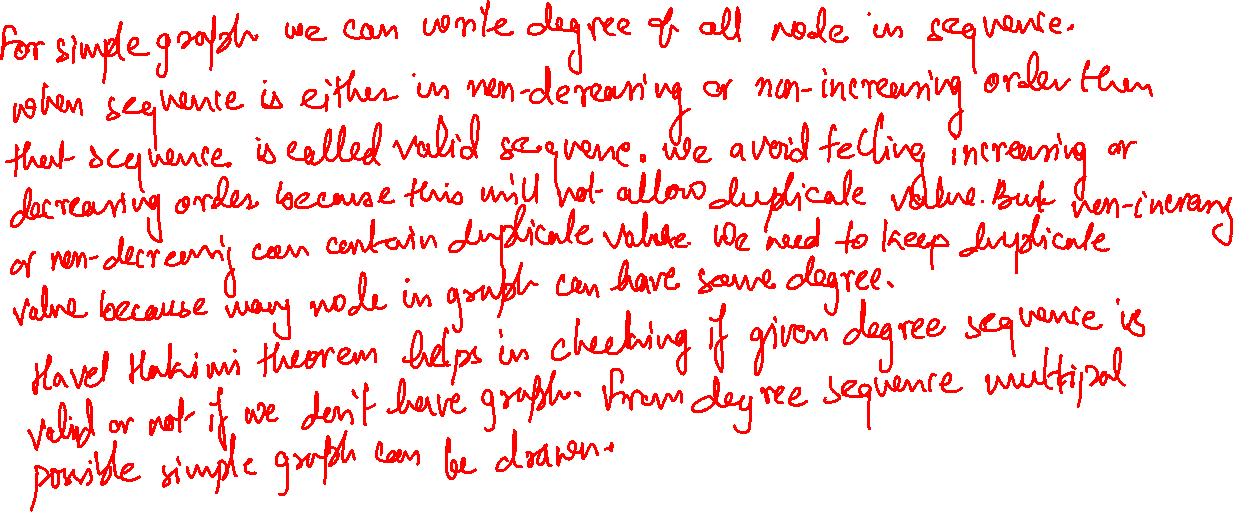 For simple graph we can write degree of all node in sequence.
when sequence is either in non-decreasing or non-increasing order then
that sequence is called valid sequence. We avoid telling increasing or
decreasing order because this will not allow duplicate value. But non-increasing
or non-decreasing can contain duplicate value. We need to keep duplicate
value because many node in graph can have same degree.
Havel Hakimi theorem helps in checking if given degree sequence is
valid or not if we don't have graph. From degree sequence multipal
possible simple graph can be drawn.